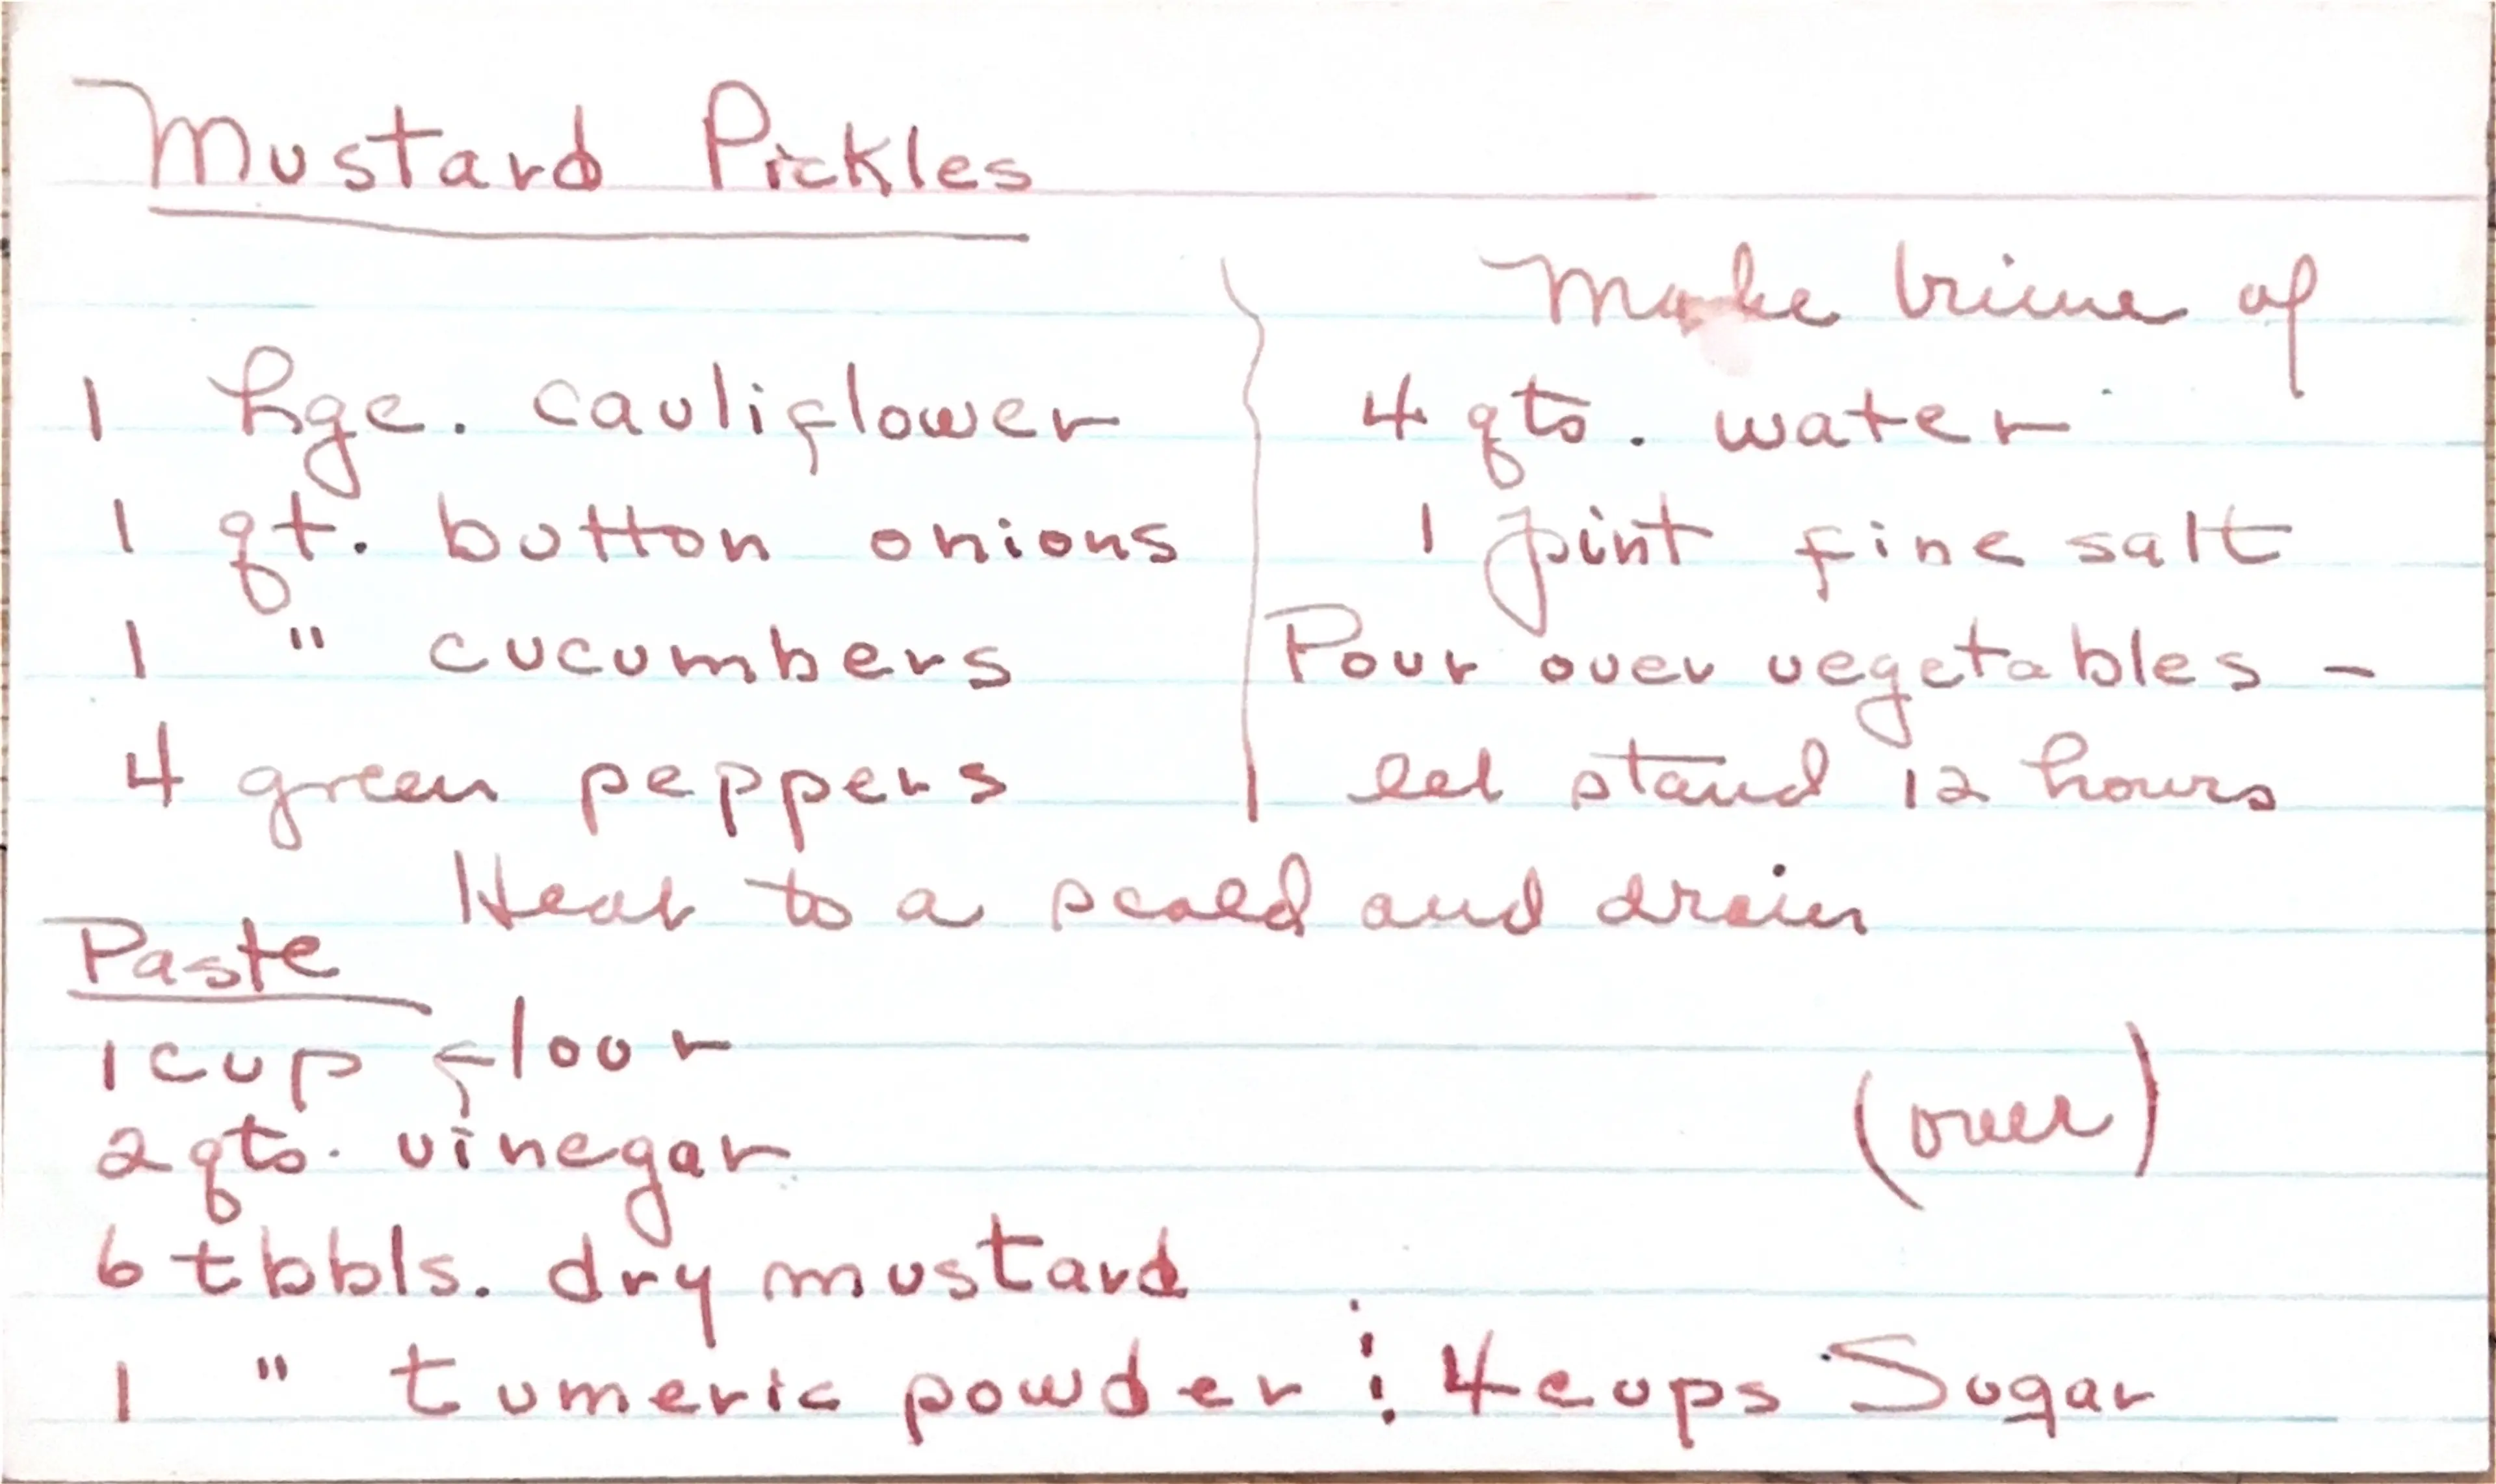 Mustard Pickles
1 lge. cauliflower
1 qt. button onions
1 " cucumbers
4 green peppers
Make brine of
4 qts. water
1 pint fine salt
Pour over vegetables -
let stand 12 hours
Heat to a scald and drain
Paste
1 cup flour
2 qts. vinegar
6 tbbls. dry mustard
1 " tumeric powder
4 cups Sugar
(over)